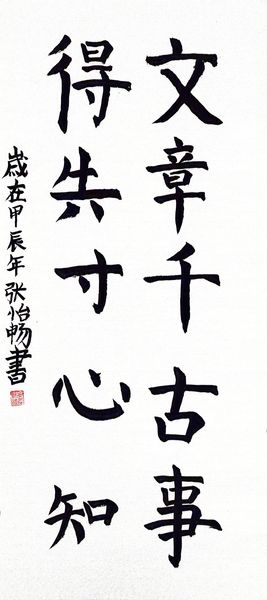 文章千古事
得失寸心知
歲在甲辰年张怡畅書